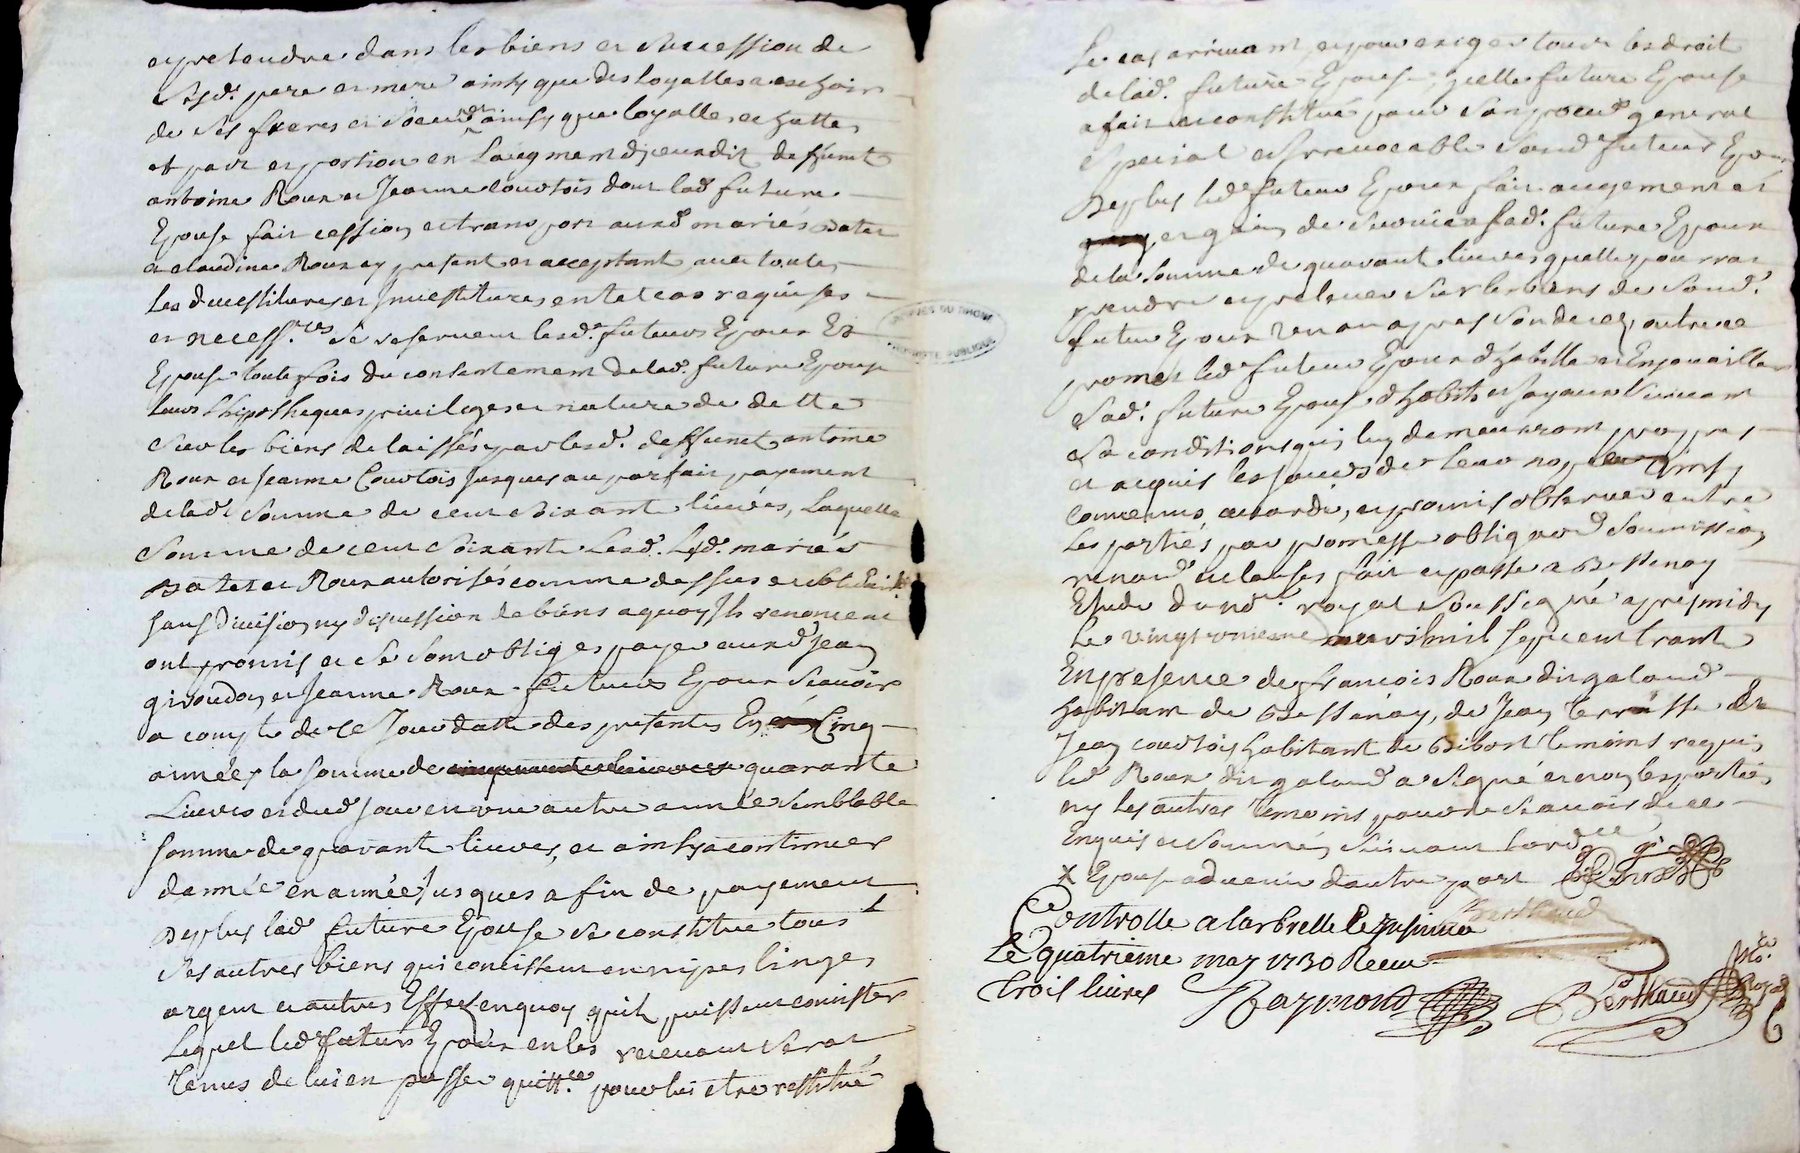 et pretendre dans les biens et succession de
sesd. pere et mere ainsy que des loyalles eschoir
de ses freres et soeurs ainsy que loyalle echutte
et part et portion en l'augment dijeundit deffunt
antoine Roux et Jeanne Courtois dont lad future
Epouse fait cession et transport ausd mariés Bater
et claudine Roux cy present et acceptant avec toutes
les devestitures et Jnvestitures en tel cas requises
et necess.res se reservent lesd. futurs Epoux Et
Epouse toutefois du consentement de lad. future Epouse
leurs hipotheques privileges et nature de dette
sur les biens delaissés par lesd. deffunct antoine
Roux et Jeanne Courtois Jusques au parfait payement
de lad. somme de cent soixante livres, Laquelle
somme de cent soixante Lesd. mariés
Bater et Roux autorisés comme dessus et
sans Division ny discussion de biens a quoy Jls renoncent
ont promis et se sont obliges payer ausd Jean
giroudon et Jeanne Roux futurs Epoux Scavoir
a compte de ce Jourdatte des presentes En Cinq
années la somme de quarante
Livres et dud Jour en une autre année semblable
somme de quarante livres, et ainsy a continuer
dannée en année Jusques a fin de payement
Deplus lad future Epouse se constitue tous
ses autres biens qui concistent en nipes linges
argent et autres Effets en quoy quil puissent concister
Lequel led futur Epoux en les recevant serat
tenus de lui en passer quitt.ce pour lui etre restitué
Le cas arrivant, et pour exiger tous les droit
de lad. future Epouse, Jcelle future Epouse
a fait et constitué pour son procur general
Special et Jrrevocable sond futur Epoux
Deplus led futur Epoux fait augement et
et gain de survie a sad. future Epouse
de la somme de quarant livres quelle pourrat
prendre et prelever sur les biens de sond.
futur Epoux venant apres son deces, outre ce
promet led futur Epoux d'habille et Enjouailler
sad. future Epouse d'habits et joyaux suivant
sa condition qui luy demeureront propres
et acquis les jours de leur nopces Ainsy
Convenus, accordé, et promis observer entre
Les parties par promesse obligaon soumission
renonon et clauses fait et passé a Bessenay
Etude du not. royal soussigné apres midy
Le vingt uniesme avril mil sept cent trante
En presence de francois Roux dit galand
habitant de Bessenay, de Jean terrasse et
Jean courtois habitant de Bibost temoins requis
led Roux dit galand a signé et non les parties
ny les autres temoins pour ne scavoir de ce
Enquis et sommés suivant lord.ce
x Epouse advenir dautre part
Controllé a larbrelle le
Le quatrieme may 1730 Receu
trois livres
Raymond
Berthaud
Not. Royal